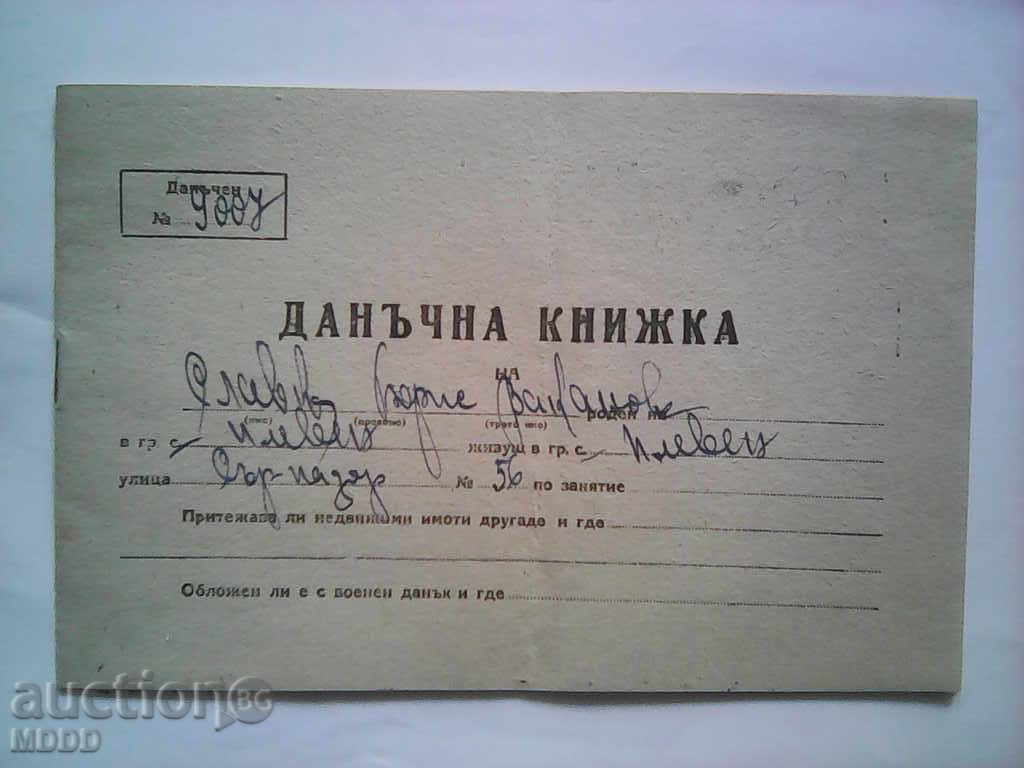 Данъчен
№ 9007
ДАНЪЧНА КНИЖКА
НА
Славов Борис роден на
(име) (презиме) (трето име)
в гр. с. Плевен живущ в гр. с. Плевен
улица № 56 по занятие
Притежава ли недвижими имоти другаде и где
Обложен ли е с военен данък и где
auction BG
MDDD